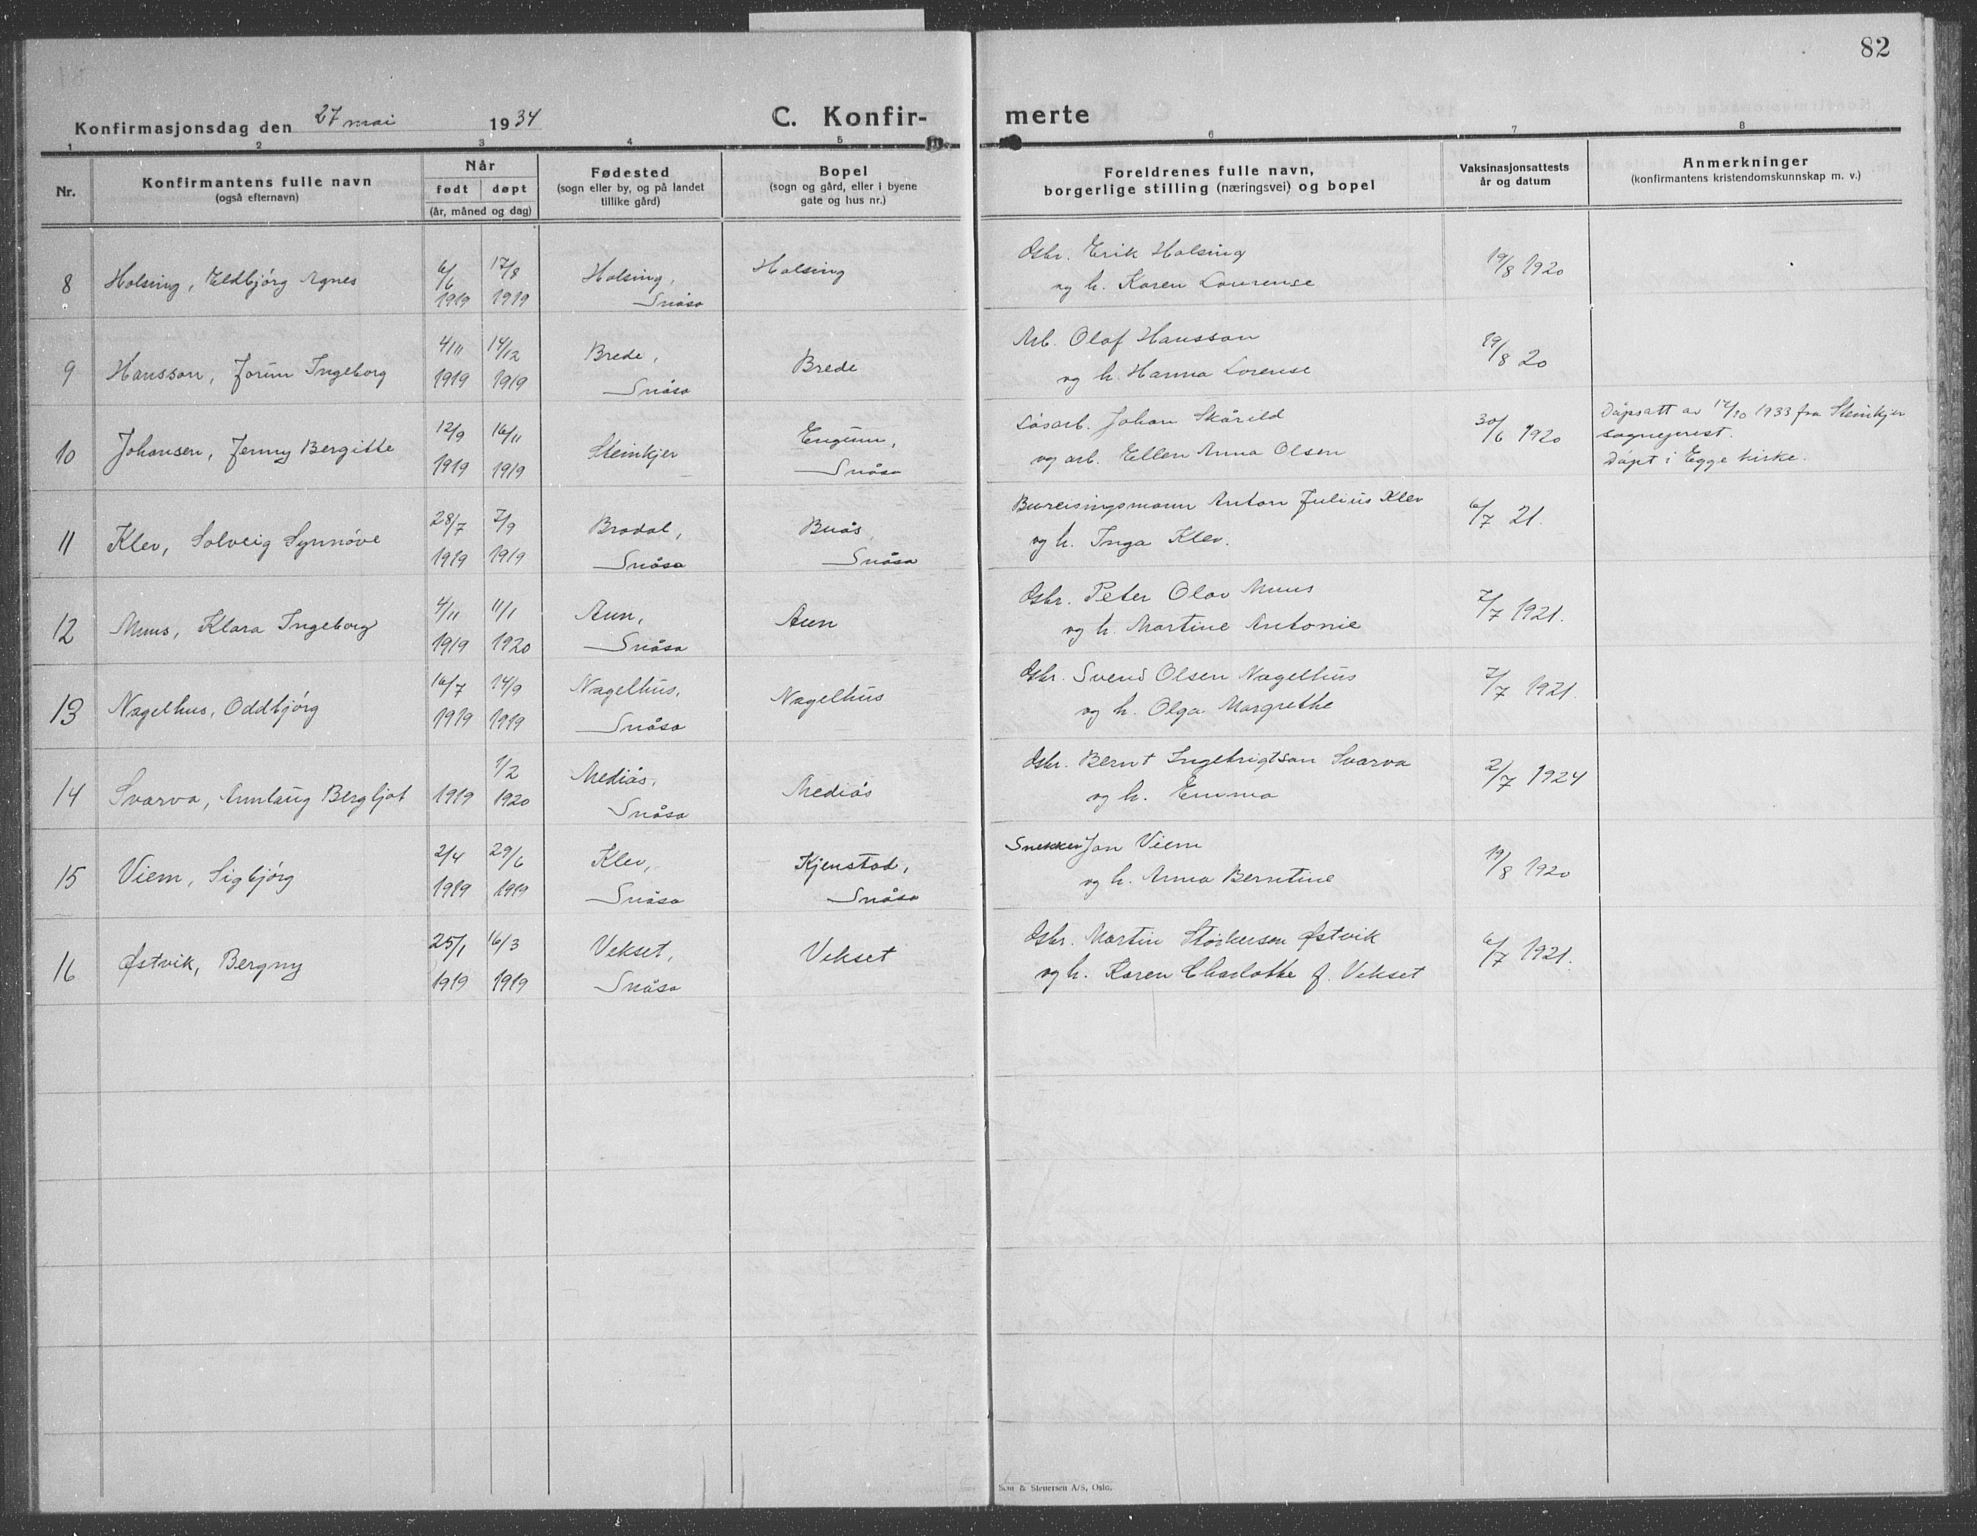 82
Konfirmasjonsdag den 27 mai 1934
C. Konfir- merte
1 2 3 4 5 6 7 8
Nr.
Konfirmantens fulle navn
(også efternavn)
Når
født døpt
(år, måned og dag)
Fødested
(sogn eller by, og på landet
tillike gård)
Bopel
(sogn og gård, eller i byene
gate og hus nr.)
Foreldrenes fulle navn,
borgerlige stilling (næringsvei) og bopel
Vaksinasjonsattests
år og datum
Anmerkninger
(konfirmantens kristendomskunnskap m. v.)
8 Holsing, Eldbjørg Agnes 6/6 17/8 Holsing, Holsing Gbr. Erik Holsing 19/8 1920
1919 1919 Snåsa og h. Karen Lourense
9 Hansson, Jorun Ingeborg 4/11 14/12 Brede, Brede Arb. Olof Hansson 19/8 20
1919 1919 Snåsa og h. Hanna Lorense
10 Johansen, Jenny Bergitte 12/9 16/11 Steinkjer Engum, Løsarb. Johan Skårild 30/6 1920 Dåpsatt av 12/10 1933 fra Steinkjer
1919 1919 Snåsa og arb. Ellen Anna Olsen sogneprest.
Døpt i Egge kirke.
11 Klev, Solveig Synnøve 28/7 7/9 Brodal, Buås, Bureisingsmann Anton Julius Klev 6/7 21.
1919 1919 Snåsa Snåsa og h. Inga Klev.
12 Muus, Klara Ingeborg 4/11 11/1 Aun, Aun Gbr. Peter Olav Muus 7/7 1921.
1919 1920 Snåsa og h. Martine Antonie
13 Nagelhus, Oddbjørg 16/7 14/9 Nagelhus, Nagelhus Gbr. Svend Olsen Nagelhus 7/7 1921.
1919 1919 Snåsa og h. Olga Margrethe
14 Svarva, Annlaug Bergljot 1/2 Mediås, Mediås Gbr. Bernt Ingebrigtsen Svarva 2/7 1924
1919 1920 Snåsa og h. Emma
15 Viem, Sigbjørg 2/4 29/6 Klev, Kjenstad, Snekker Jon Viem 19/8 1920
1919 1919 Snåsa Snåsa og h. Anna Berntine
16 Østvik, Bergny 25/1 16/3 Vekset, Vekset Gbr. Martin Størkersen Østvik 6/7 1921.
1919 1919 Snåsa og h. Karen Charlotte f. Vekset
& Steuersen A/S, Oslo.